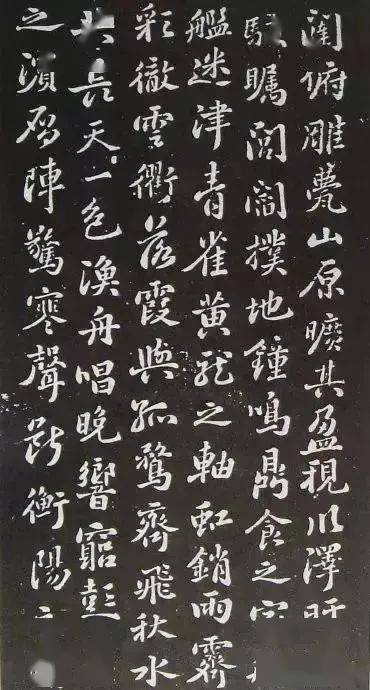 闥俯雕甍山原曠其盈視川澤盱
駭矚閭閻撲地鐘鳴鼎食之家
艦迷津青雀黃龍之軸虹銷雨霽
彩徹雲衢落霞與孤鶩齊飛秋水
共長天一色漁舟唱晚響窮彭
之濱雁陣驚寒聲斷衡陽